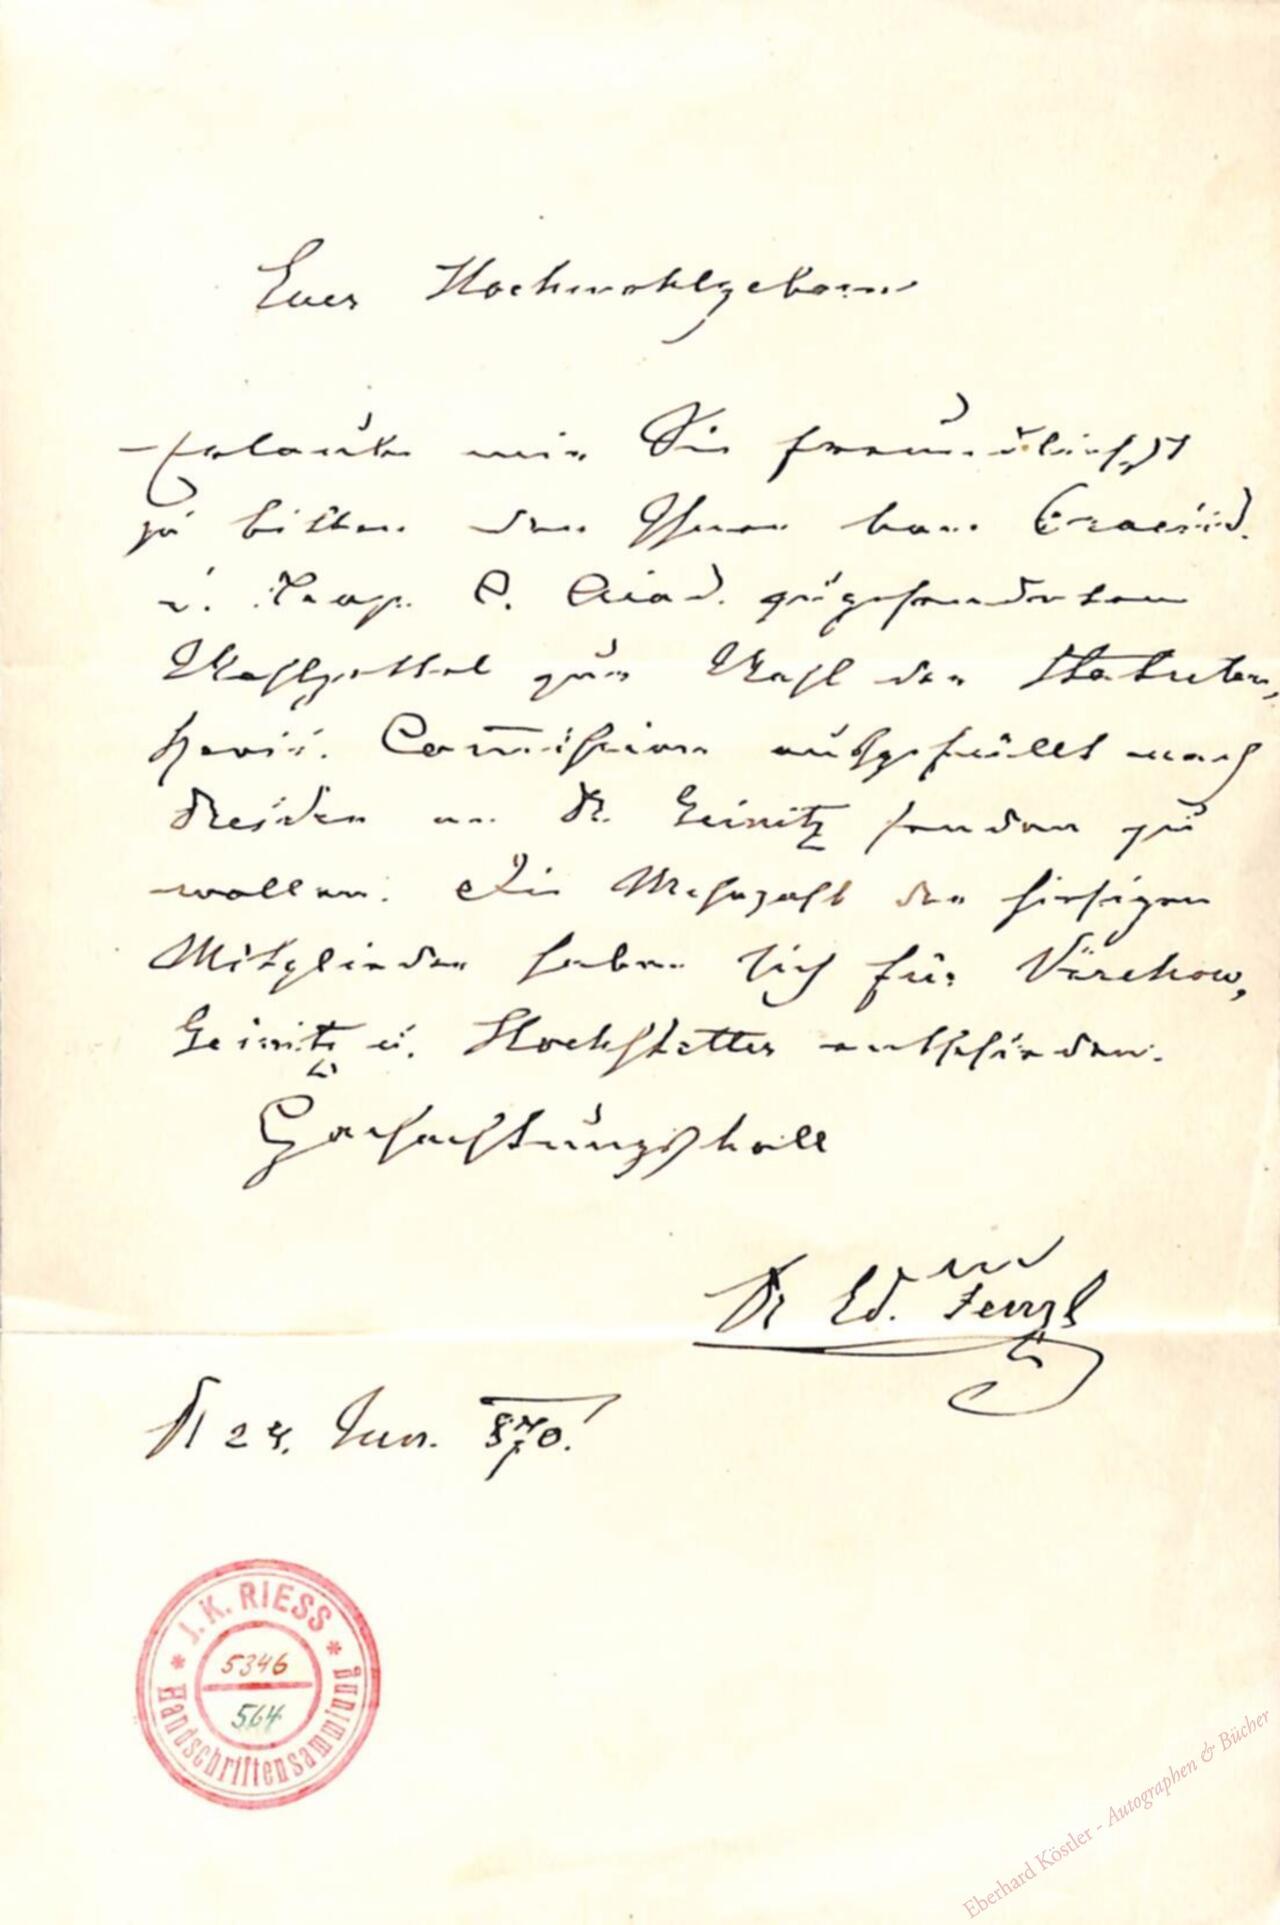 Euer Hochwohlgeborn
erlaube mir Sie freundlichst
zu bitten den Ihnen von
d. Leop. C. Acad. zugesendeten
Wahlzettel zur Wahl der Statuten,
Commission ausgefüllt nach
Dresden an Dr. Geinitz senden zu
wollen. Die Mehrzahl der hiesigen
Mitglieder haben sich für Virchow,
Geinitz u. Hochstetter entschieden.
Hochachtungsvoll
Dr Ed. Fenzl
24. Jun. 870.
* J. K. RIESS *
5346
564
Handschriftensammlung
Eberhard Köstler - Autographen & Bücher